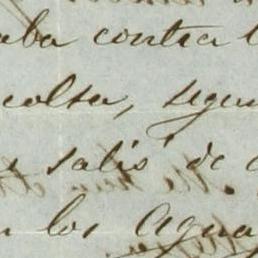 aba contra l
colta, segun
salió de
los Agua